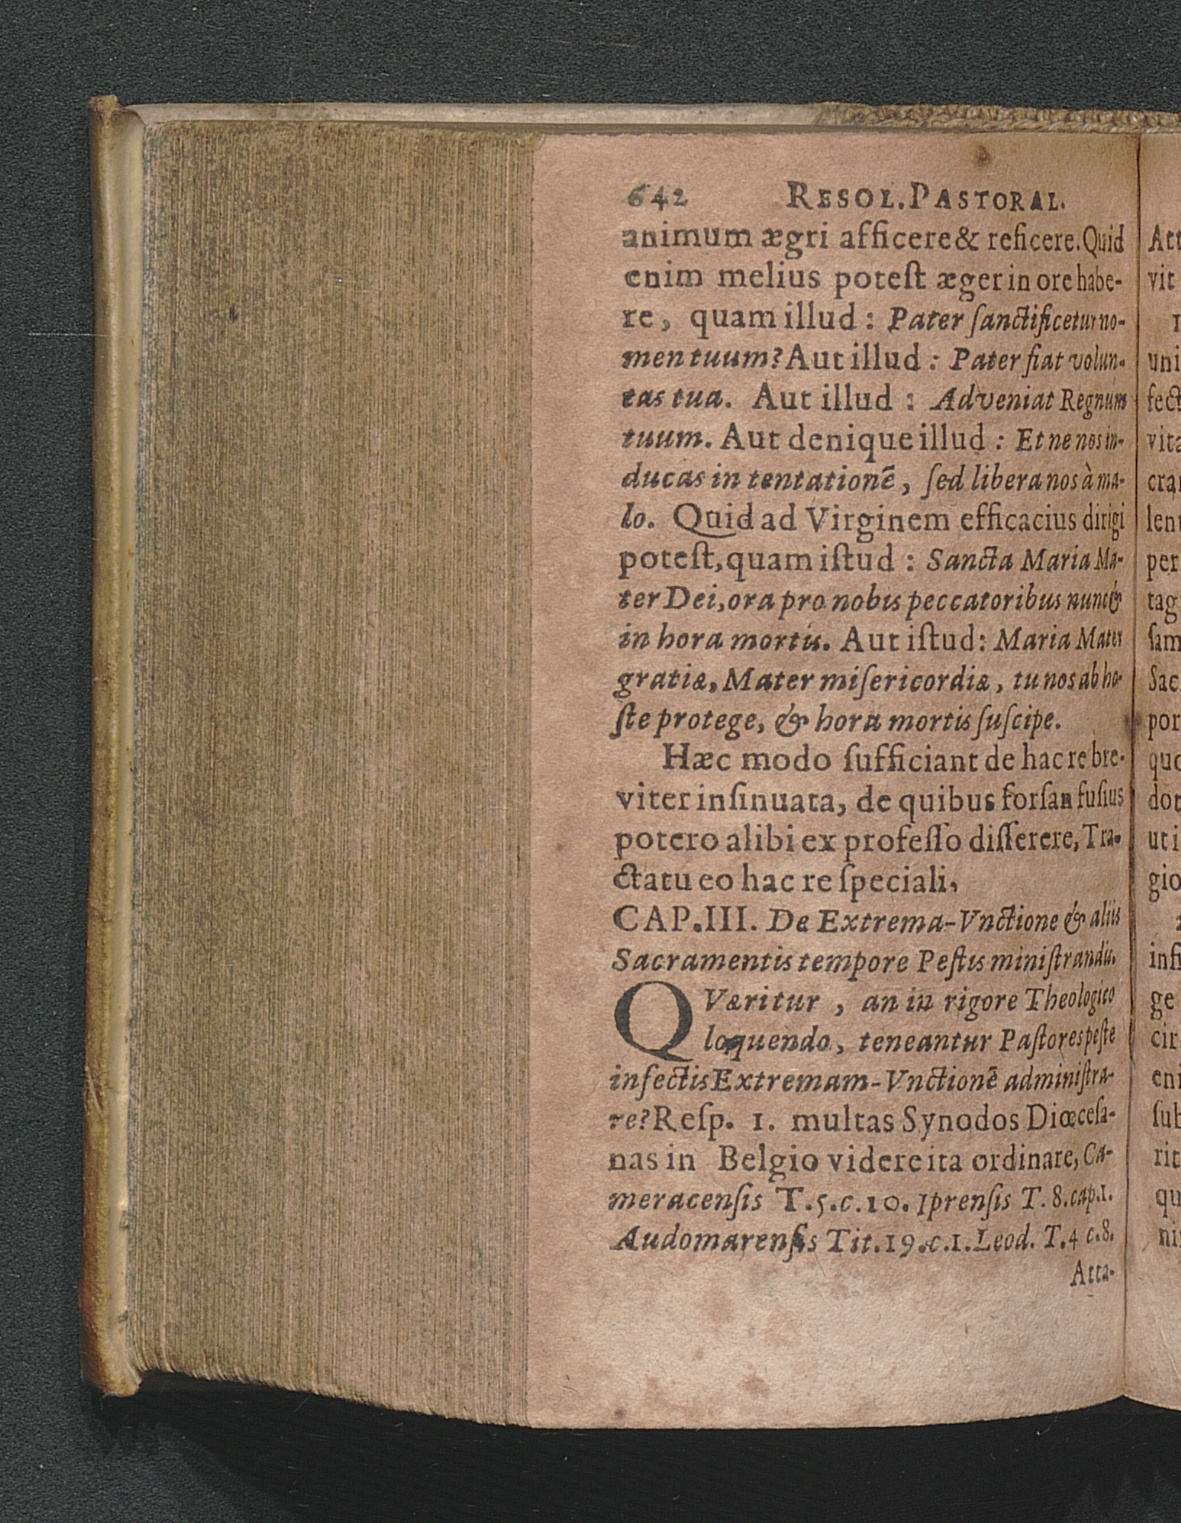 642 RESOL. PASTORAL.
animum ægri afficere & reficere. Quid
enim melius potest æger in ore habe-
re, quam illud : Pater sanctificetur no-
men tuum? Aut illud : Pater fiat volun-
tas tua. Aut illud : Adveniat Regnum
tuum. Aut denique illud : Et ne nos in-
ducas in tentationē, sed libera nos à ma-
lo. Quid ad Virginem efficacius dirigi
potest, quam istud : Sancta Maria Ma-
ter Dei, ora pro nobis peccatoribus nunc &
in hora mortis. Aut istud: Maria Mater
gratiæ, Mater misericordiæ, tu nos ab ho-
ste protege, & hora mortis suscipe.
Hæc modo sufficiant de hac re bre-
viter insinuata, de quibus forsan fusius
potero alibi ex professo disserere, Tra-
ctatu eo hac re speciali,
CAP. III. De Extrema-Vnctione & aliis
Sacramentis tempore Pestis ministrandis.
QVæritur, an in rigore Theologico
loquendo, teneantur Pastores peste
infectis Extremam-Vnctionē administra-
re? Resp. 1. multas Synodos Diœcesa-
nas in Belgio videre ita ordinare, Ca-
meracensis T.5.c.10. Iprensis T.8.cap.1.
Audomarensis Tit.19.c.1. Leod. T.4 c.8.
Atta-
Att
vit
1
uni
fect
vita
cra
lent
per
tag
sam
Sac
por
quo
dot
uti
gio
2
infi
ge
cir
eni
sub
rit
qu
ni